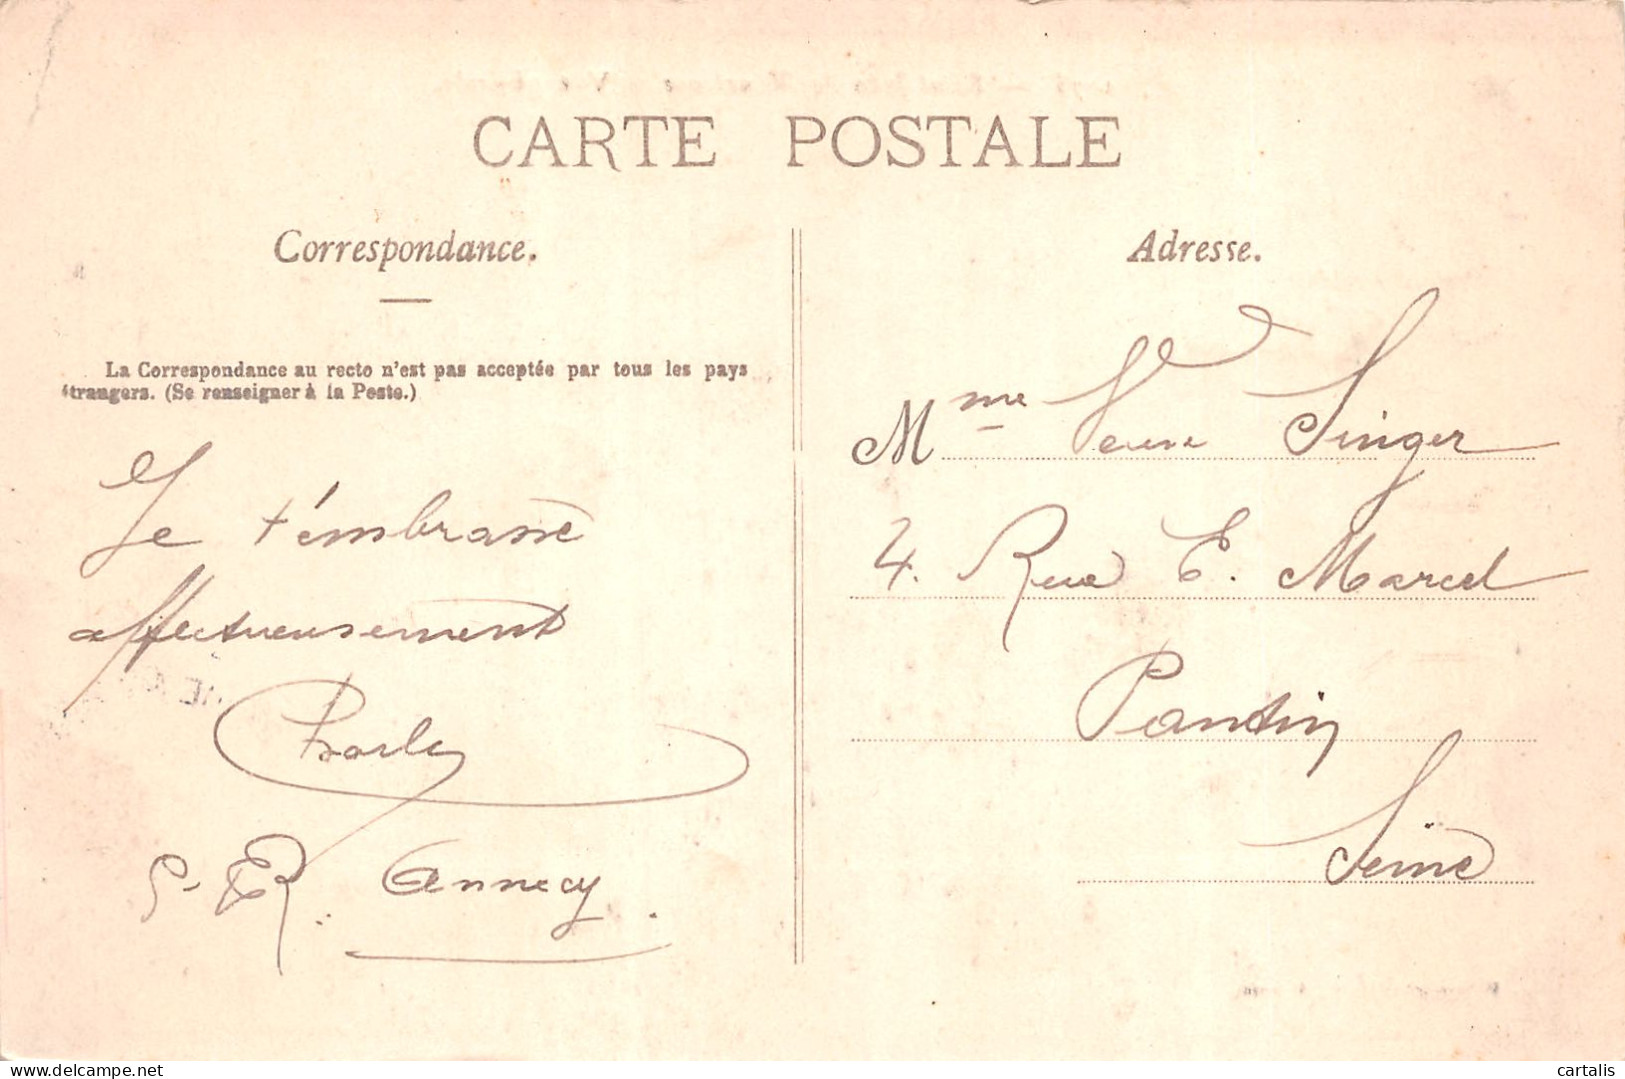 CARTE POSTALE
Correspondance.
La Correspondance au recto n'est pas acceptée par tous les pays
étrangers. (Se renseigner à la Poste.)
Je t'émbrasse
affectueusement
Charles
P. R. Annecy.
Adresse.
Mme Veuve Singer
4. Rue E. Marcel
Pantin
Seine
www.delcampe.net
cartalis